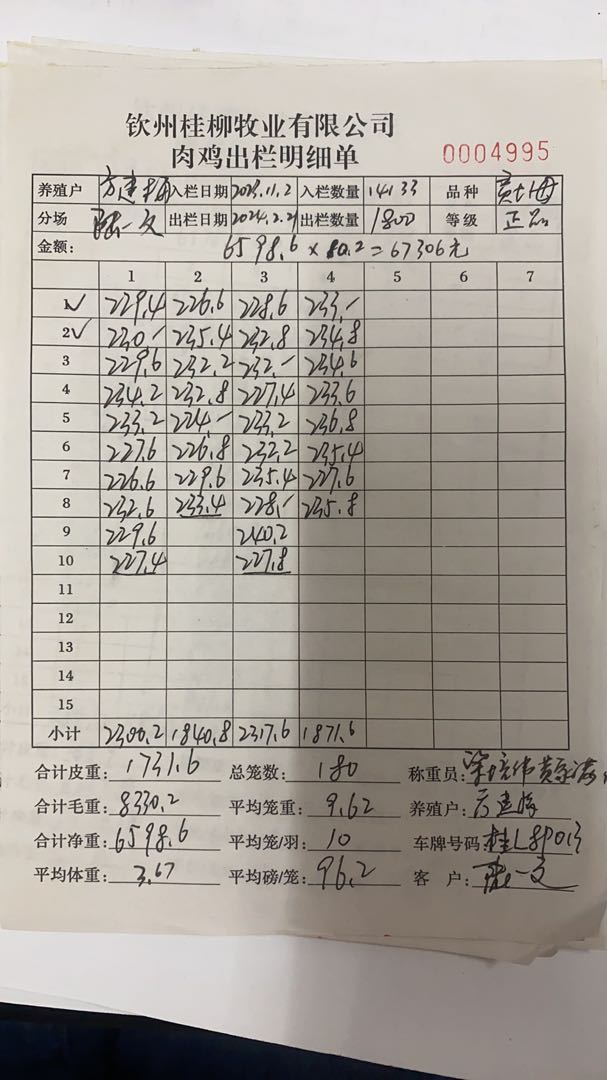 钦州桂柳牧业有限公司
肉鸡出栏明细单 0004995
养殖户 方建 入栏日期 2023.11.2 入栏数量 14133 品种
分场 陈一文 出栏日期 2024.2.29 出栏数量 1800 等级 正品
金额: 6598.6 × 10.2 = 67306元
1 2 3 4 5 6 7
1 ✓ 229.4 226.6 228.6 233.-
2 ✓ 230.- 235.4 232.8 234.8
3 229.6 232.2 232.- 234.6
4 234.2 232.8 227.4 233.6
5 233.2 224.- 233.2 236.8
6 227.6 226.8 232.2 235.4
7 226.6 229.6 235.4 227.6
8 232.6 233.4 228.- 235.8
9 229.6 240.2
10 227.4 227.8
11
12
13
14
15
小计 2300.2 1840.8 2317.6 1871.6
合计皮重: 1731.6 总笼数: 180 称重员:
合计毛重: 8330.2 平均笼重: 9.62 养殖户: 方建
合计净重: 6598.6 平均笼/羽: 10 车牌号码
平均体重: 3.67 平均磅/笼: 96.2 客 户: 陈一文